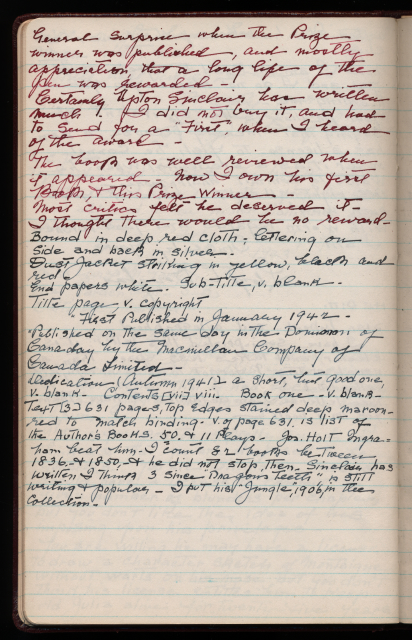 General Surprise when the Prize
winner was published, and mostly
appreciation, that a long life of the
pen was rewarded -.
Certainly Upton Sinclair has written
much! I did not buy it, and had
to send for a "First", when I heard
of the award -
The book was well reviewed when
it appeared - Now I own his first
Book, & this Prize Winner -
Most critics felt he deserved it -
I thought there would be no reward -
Bound in deep red cloth; lettering on
Side and back in silver -
Dust Jacket striking in yellow, black and
red
End papers white. Sub-Title, v. blank.
Title page, v. Copyright
"First Published in January 1942 -
"Published on the same day in the Dominion of
Canada by the Macmillan Company of
Canada Limited -
Dedication (Autumn 1941) a short, but good one,
v. blank - Contents [vii] viii. Book one - v. blank -
Text [3] 631 pages, Top edges stained deep maroon-
red to match binding. - v. of page 631, is list of
the Author's Books. 50, & 11 Plays - Jos. Holt Ingra-
ham beat him - I count 82 books between
1836, & 1850, & he did not stop, then - Sinclair has
written I think 3 since "Dragon's Teeth", is still
writing & popular - I put his "Jungle", 1906, in the
Collection -